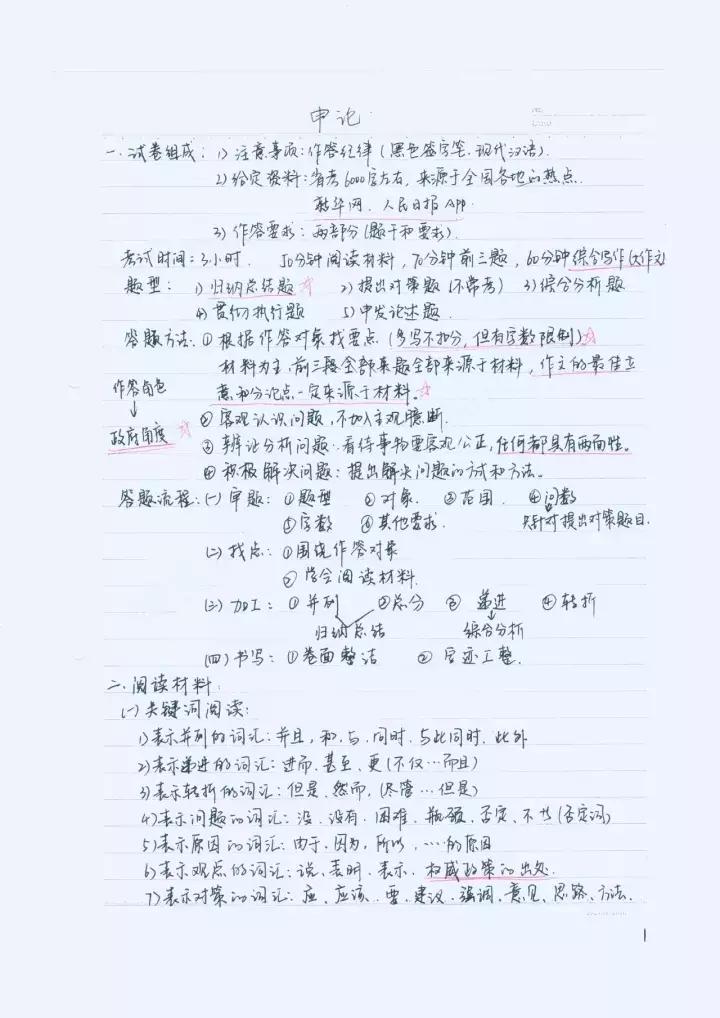 申论
一、试卷组成：1) 注意事项：作答纪律（黑色签字笔、现代汉语）.
2) 给定资料：省考6000字左右，来源于全国各地的热点.
新华网、人民日报App.
3) 作答要求：两部分（题干和要求）.
考试时间：3小时. 50分钟阅读材料，70分钟前三题，60分钟综合写作（大作文）
题型： 1) 归纳总结题☆ 2) 提出对策题（不常考） 3) 综合分析题
4) 贯彻执行题 5) 申发论述题.
答题方法：① 根据作答对象找要点（多写不扣分，但有字数限制）☆
材料为主.前三题全部来题全部来源于材料，作文的最佳立
作答角色
意和分论点一定来源于材料。☆
↓
② 客观认识问题，不加入主观臆断.
政府角度 ☆
③ 辨证分析问题：看待事物要客观公正，任何都具有两面性。
④ 积极解决问题：提出解决问题的方式和方法。
答题流程：(一) 审题：①题型 ②对象. ③范围. ④问数
⑤字数 ⑥其他要求. 只针对提出对策题目.
(二) 找点：①围绕作答对象
② 学会阅读材料.
(三) 加工：①并列 ②总分 ③递进 ④转折
归纳总结 综合分析
(四) 书写：①卷面整洁 ② 字迹工整.
二、阅读材料：
(一) 关键词阅读：
1)表示并列的词汇：并且，和、与、同时、与此同时、此外
2)表示递进的词汇：进而、甚至、更（不仅…而且）
3)表示转折的词汇：但是、然而，（尽管…但是）
4)表示问题的词汇：没、没有、困难、瓶颈、否定、不（否定词）
5)表示原因的词汇：由于、因为，所以，…的原因
6)表示观点的词汇：说、表明、表示、权威政策的出处.
7)表示对策的词汇：应、应该、要、建议、强调、意见、思路、方法.
1